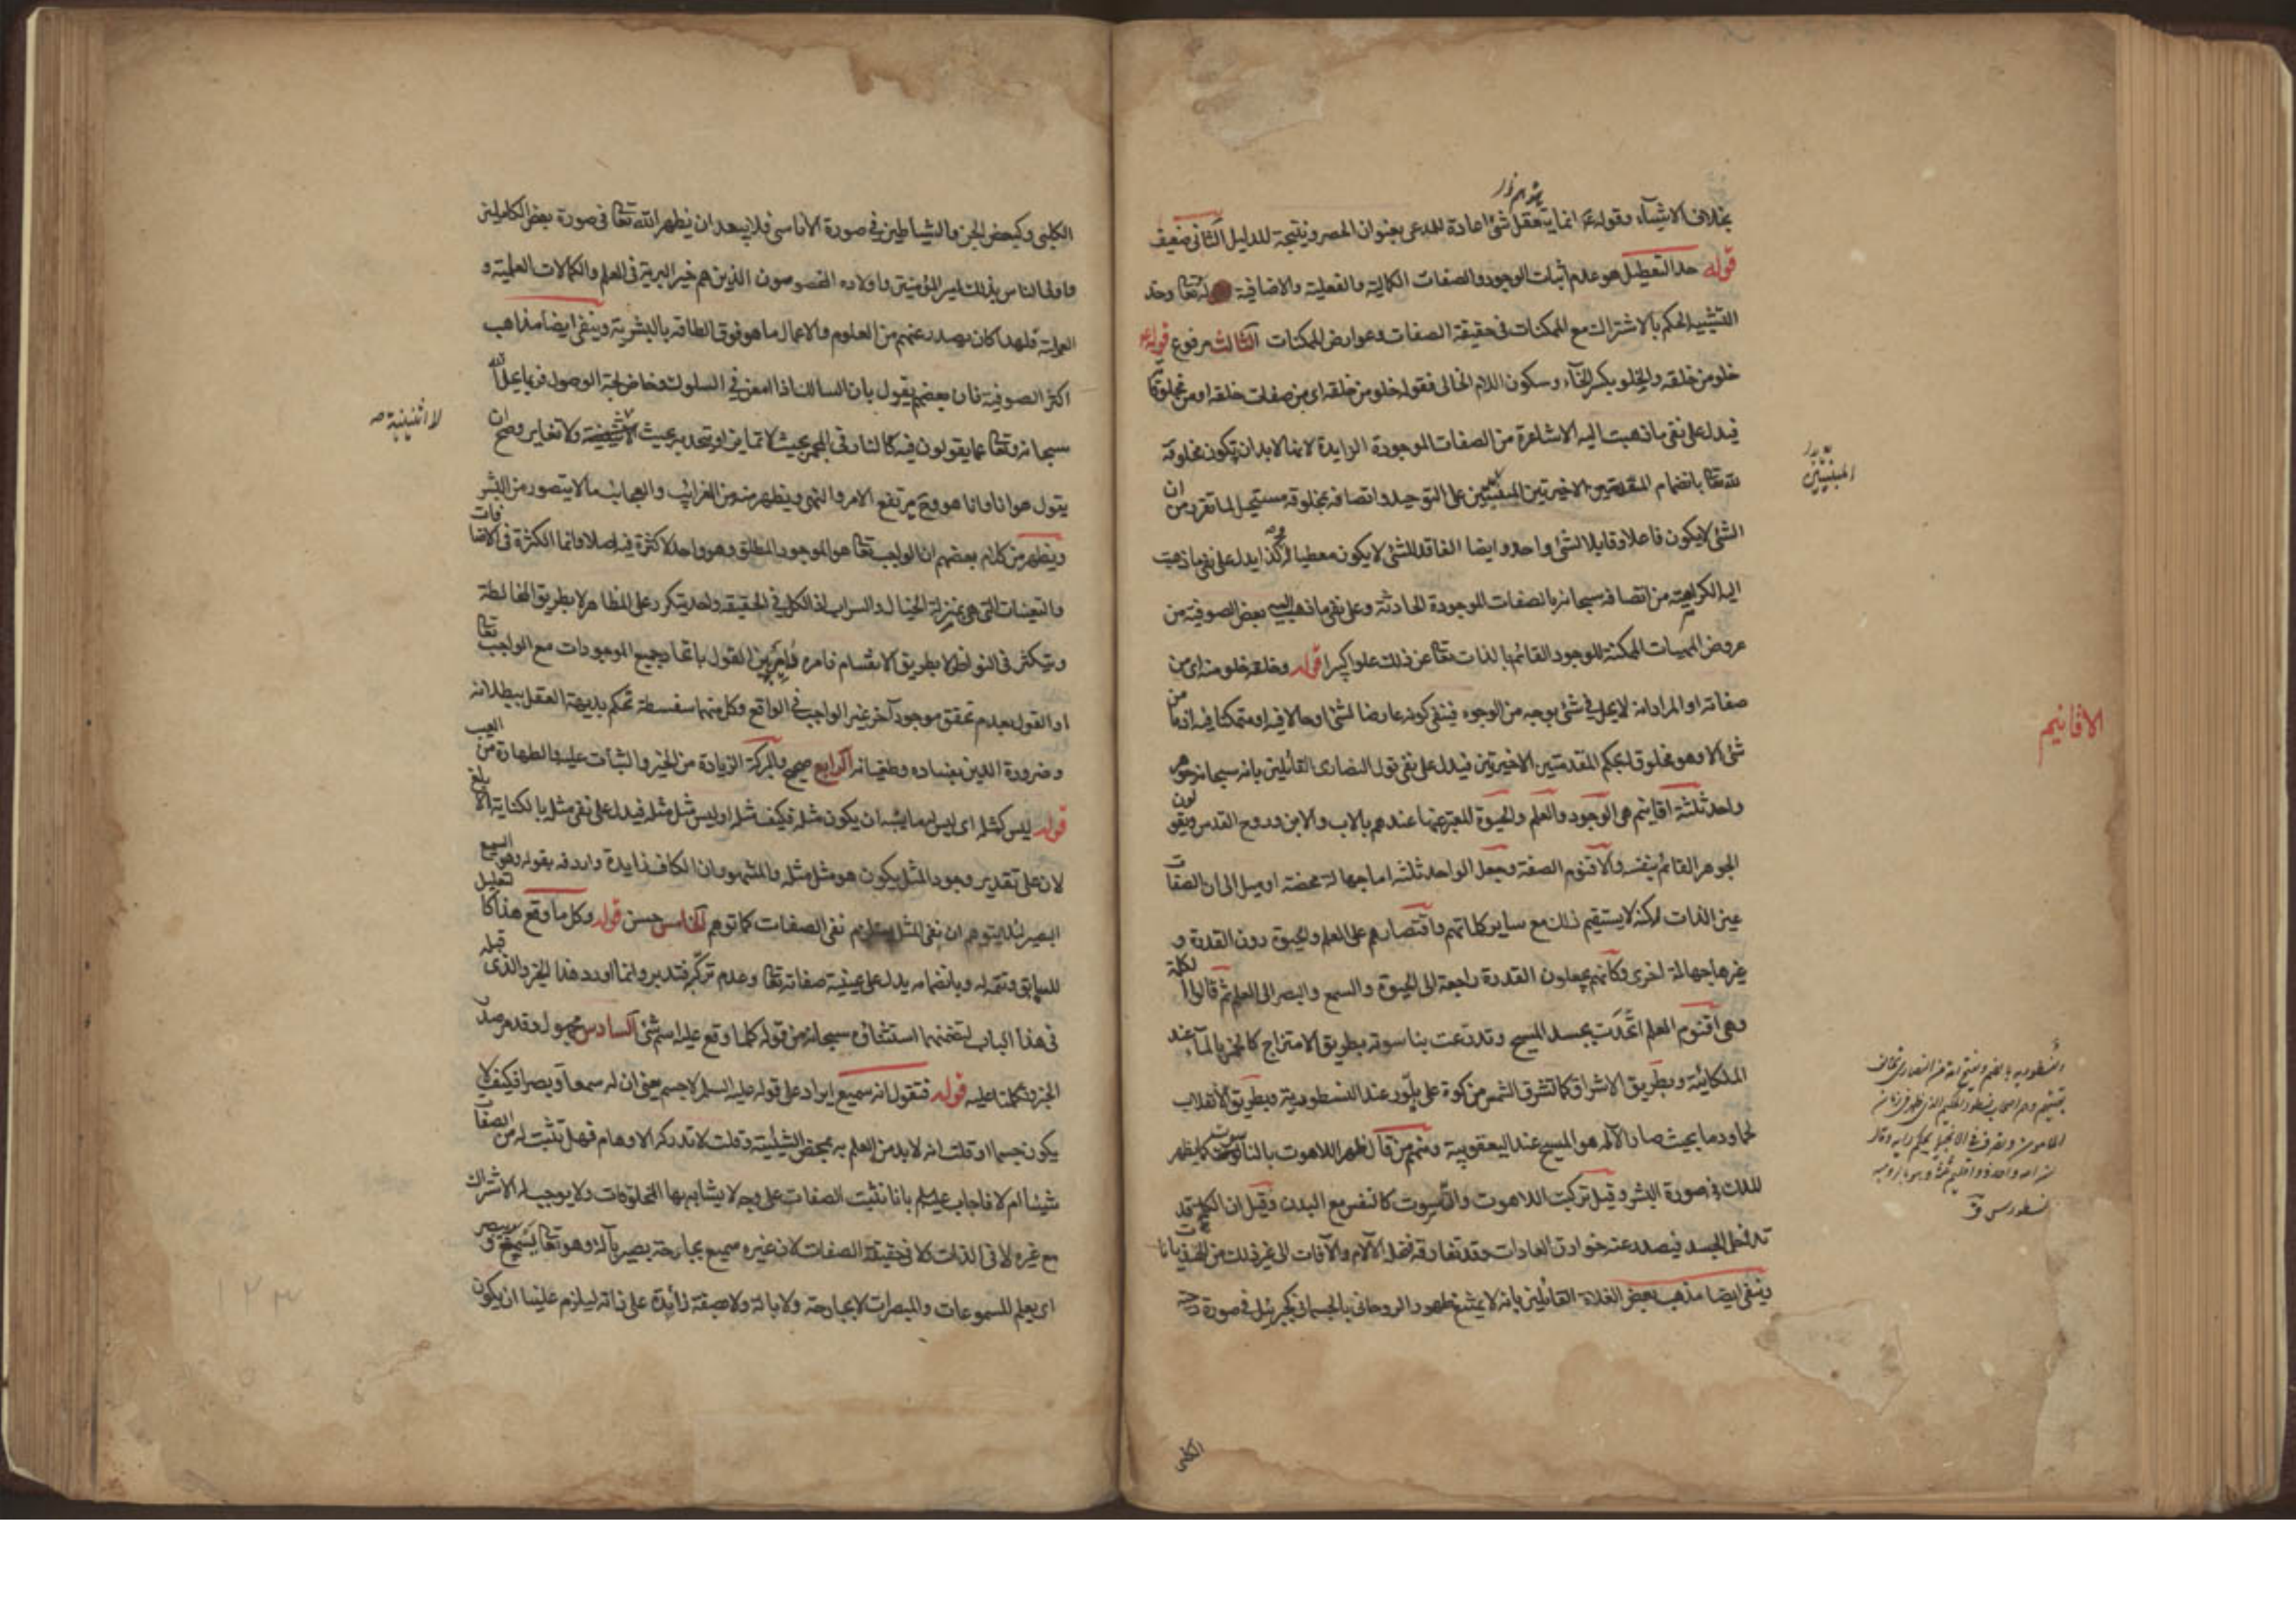 بخلاف الاشياء وقوله ع انما يتعقل شئ اعادة للمدعى بعنوان الحصر ونتيجة للدليل الثانى ضعيف
قوله حد التعطيل هو عدم اثبات الوجود والصفات الكمالية والفعلية والاضافية له تعا وحد
التشبيه الحكم بالاشتراك مع الممكنات فى حقيقة الصفات وعوارض الممكنات الثالث مرفوع قوله ع
خلو من خلقه والخلو بكسر الخآء وسكون اللام الخالى فقوله خلو من خلقه اى من صفات خلقه او من مخلوقاته
فيدل على نفى ما ذهبت اليه الاشاعرة من الصفات الموجودة الزايدة لانها لابد ان تكون مخلوقة
لله تعا بانضمام المقدمتين الاخيرتين المبنيتين على التوحيد واتصافه بمخلوقه مستحيل لما تقرر من ان
الشئ لا يكون فاعلا وقابلا لشئ واحد وايضا الفاقد للشئ لا يكون معطيا له وكذا يدل على نفى ما ذهبت
اليه الكرامية من اتصافه سبحانه بالصفات الموجودة الحادثة وعلى نفى ما ذهب اليه بعض الصوفية من
عروض المهيات الممكنة للوجود القائم بالذات تعا عن ذلك علوا كبيرا قوله وخلقه خلو منه اى من
صفاته او المراد انه لا يحل فى شئ بوجه من الوجوه فينفى كونه عارضا لشئ او حالا فيه او متمكنا فيه اذ ما من
شئ الا وهو مخلوق له بحكم المقدمتين الاخيرتين فيدل على نفى قول النصارى القائلين بانه سبحانه جوهر
واحد ثلثة اقانيم هى الوجود والعلم والحيوة المعبر عنها عندهم بالاب والابن وروح القدس ويقولون
الجوهر القائم بنفسه والاقنوم الصفة وجعل الواحد ثلثه اما جهالة محضة او ميل الى ان الصفات
عين الذات لكنه لا يستقيم ذلك مع ساير كلماتهم واقتصارهم على العلم والحيوة دون القدرة و
غيرها جهالة اخرى وكانهم يجعلون القدرة راجعة الى الحيوة والسمع والبصر الى العلم ثم قالوا الكلمة
وهى اقنوم العلم اتحدت بجسد المسيح وتدرعت بناسوته بطريق الامتزاج كالخمر بالمآء عند
الملكائية وبطريق الاشراق كما تشرق الشمس من كوة على بلّور عند النسطورية وبطريق الانقلاب
لحما ودما بحيث صار الاله هو المسيح عند اليعقوبية ومنهم من قال ظهر اللاهوت بالناسوت كما يظهر
الملك فى صورة البشر وقيل تركبت اللاهوت والناسوت كالنفس مع البدن وقيل ان الكلمة قد
تداخل الجسد فيصدر عنه خوارق العادات وقد تفارقه فتحله الآلام والآفات الى غير ذلك من الهذيانات
وينفى ايضا مذهب بعض الغلاة القائلين بانه لا يمتنع ظهور الروحانى بالجسمانى كجبرئيل فى صورة دحية
الكلبى
المبنيتين
الاقانيم
الكلبى وكبعض الجن والشياطين فى صورة الاناسى فلا يبعد ان يظهر الله تعا فى صورة بعض الكاملين
واولى الناس بذلك امير المؤمنين واولاده المخصوصون الذين هم خير البرية فى العلم والكمالات العلمية و
العملية فلهذا كان يصدر عنهم من العلوم والاعمال ما هو فوق الطاقة بالبشرية وينفى ايضا مذاهب
اكثر الصوفية فان بعضهم يقول بان السالك اذا امعن فى السلوك وخاض لجة الوصول فربما يحل الله
سبحانه وتعا عما يقولون فيه كالنار فى الجمر بحيث لا تمايز او يتحد به بحيث لا اثنينية ولا تغاير وصح ان
يقول هو انا وانا هو وح يرتفع الامر والنهى ويظهر منه من الغرائب والعجائب ما لا يتصور من البشر
ويظهر من كلام بعضهم ان الواجب تعا هو الموجود المطلق وهو واحد لا كثرة فيه اصلا وانما الكثرة فى الاضافات
والتعينات التى هى بمنزلة الخيال والسراب اذ الكل فى الحقيقة واحد يتكرر على المظاهر لا بطريق المخالطة
ويتكثر فى النواظر لا بطريق الانقسام فامره دائر بين القول باتحاد جميع الموجودات مع الواجب تعا
او القول بعدم تحقق موجود آخر غير الواجب فى الواقع وكل منهما سفسطة تحكم بديهة العقل ببطلانه
وضرورة الدين بفساده وطغيانه الرابع صحيح والبركة الزيادة من الخير والثبات عليه والطهارة من العيب
قوله ليس كمثله اى ليس له ما يشبه ان يكون مثله فكيف مثله او ليس مثل مثله فيدل على نفى مثله بالكناية الابلغ
لان على تقدير وجود المثل يكون هو مثل مثله والمشهور ان الكاف زايدة واردفه بقوله وهو السميع
البصير لئلا يتوهم ان نفى المثل يستلزم نفى الصفات كما توهم الخامس حسن قوله وكل ما وقع هذا كالتعليل
للسابق وتتمة له وبانضمامه يدل على عينية صفاته تعا وعدم تركّبه فتدبر وانما اورد هذا الخبر والذى قبله
فى هذا الباب لتضمنهما استثناؤه سبحانه من قوله كلما وقع عليه اسم شئ السادس مجهول وقد مر صدر
الخبر وتكلمنا عليه قوله فتقول انه سميع ايراد على قوله عليه السلم لا جسم يعنى ان له سمعا وبصرا فكيف لا
يكون جسما او قلت انه لا بد من العلم به بمحض الشيئية وقلت لا تدركه الاوهام فهل تثبت له من الصفات
شيئا ام لا فاجاب عليه السلم بانا نثبت الصفات على وجه لا يشابه بها المخلوقات ولا يوجب له الاشتراك
مع غيره لا فى الذات ولا فى حقيقة الصفات لان غيره سميع بجارحة بصير بآلة وهو تعا يسمع ويبصر
اى يعلم المسموعات والمبصرات لا بجارحة ولا بالة ولا بصفة زائدة على ذاته ليلزم علينا ان يكون
لا اثنينية صح